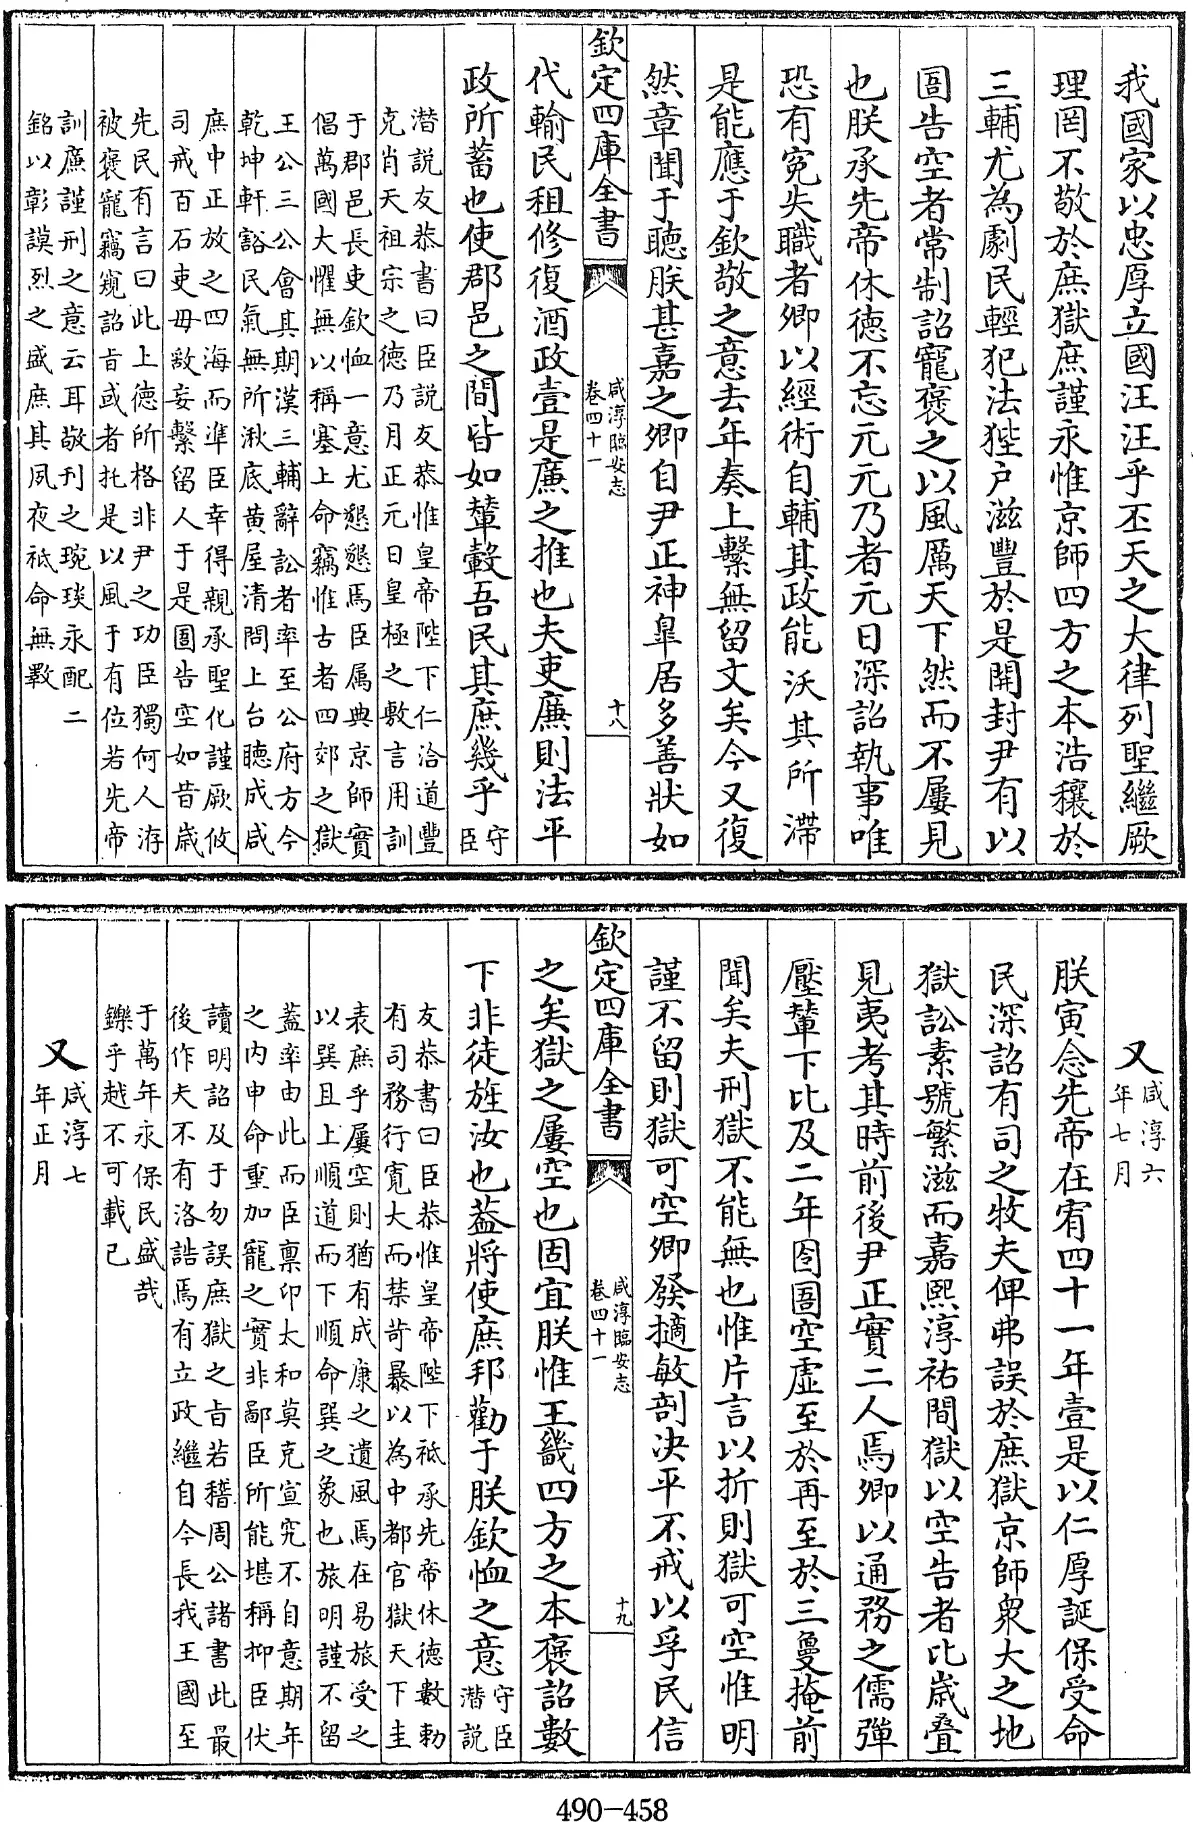 我國家以忠厚立國汪汪乎丕天之大律列聖繼厥
理罔不敬於庶獄庶謹永惟京師四方之本浩穰於
三輔尤為劇民輕犯法狴戶滋豐於是開封尹有以
圄告空者常制詔寵褒之以風厲天下然而不屢見
也朕承先帝休德不忘元元乃者元日深詔執事唯
恐有寃失職者卿以經術自輔其政能沃其所滯
是能應于欽敬之意去年奏上繫無留文矣今又復
然章聞于聽朕甚嘉之卿自尹正神臯居多善狀如
欽定四庫全書
咸淳臨安志
卷四十一
十八
代輸民租修復酒政壹是廉之推也夫吏廉則法平
政所蓄也使郡邑之間皆如輦轂吾民其庶幾乎守
臣
潛說友恭書曰臣說友恭惟皇帝陛下仁洽道豐
克肖天祖宗之德乃月正元日皇極之敷言用訓
于郡邑長吏欽恤一意尤懇懇焉臣属典京師實
倡萬國大懼無以稱塞上命竊惟古者四郊之獄
王公三公會其期漢三輔辭訟者率至公府方今
乾坤軒豁民氣無所湫底黄屋清問上台聽成咸
庶中正放之四海而準臣幸得親承聖化謹厥攸
司戒百石吏毋敢妄繫留人于是圄告空如昔歲
先民有言曰此上德所格非尹之功臣獨何人洊
被褒寵竊窺詔旨或者托是以風于有位若先帝
訓廉謹刑之意云耳敬刊之琬琰永配二
銘以彰謨烈之盛庶其夙夜祗命無斁
又咸淳六
年七月
朕寅念先帝在宥四十一年壹是以仁厚誕保受命
民深詔有司之牧夫俾弗誤於庶獄京師衆大之地
獄訟素號繁滋而嘉熙淳祐間獄以空告者比歲叠
見夷考其時前後尹正實二人焉卿以通務之儒彈
壓輦下比及二年囹圄空虛至於再至於三曼掩前
聞矣夫刑獄不能無也惟片言以折則獄可空惟明
謹不留則獄可空卿發擿敏剖決平不戒以孚民信
欽定四庫全書
咸淳臨安志
卷四十一
十九
之矣獄之屢空也固宜朕惟王畿四方之本褒詔數
下非徒旌汝也葢將使庶邦勸于朕欽恤之意守臣
潛說
友恭書曰臣恭惟皇帝陛下祗承先帝休德數勅
有司務行寛大而禁苛暴以為中都官獄天下圭
表庶乎屢空則猶有成康之遺風焉在易旅受之
以巽且上順道而下順命巽之象也旅明謹不留
葢率由此而臣禀仰太和莫克宣究不自意期年
之内申命重加寵之實非鄙臣所能堪稱抑臣伏
讀明詔及于勿誤庶獄之旨若稽周公諸書此最
後作夫不有洛誥焉有立政繼自今長我王國至
于萬年永保民盛哉
鑠乎越不可載已
又咸淳七
年正月
490-458